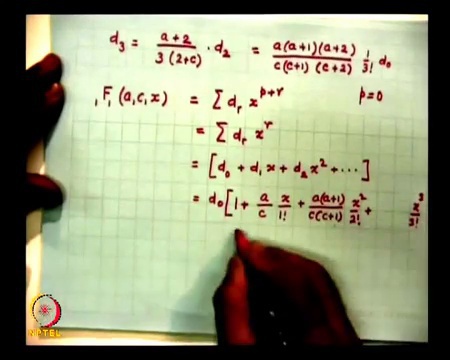 d₃ = a+2 / 3(2+c) · d₂ = a(a+1)(a+2) / c(c+1)(c+2) 1/3! d₀
₁F₁(a,c,x) = Σ dᵣ x^(p+r) p=0
= Σ dᵣ x^r
= [d₀ + d₁x + d₂x² + ···]
= d₀[1 + a/c x/1! + a(a+1)/c(c+1) x²/2! + x³/3!
NPTEL